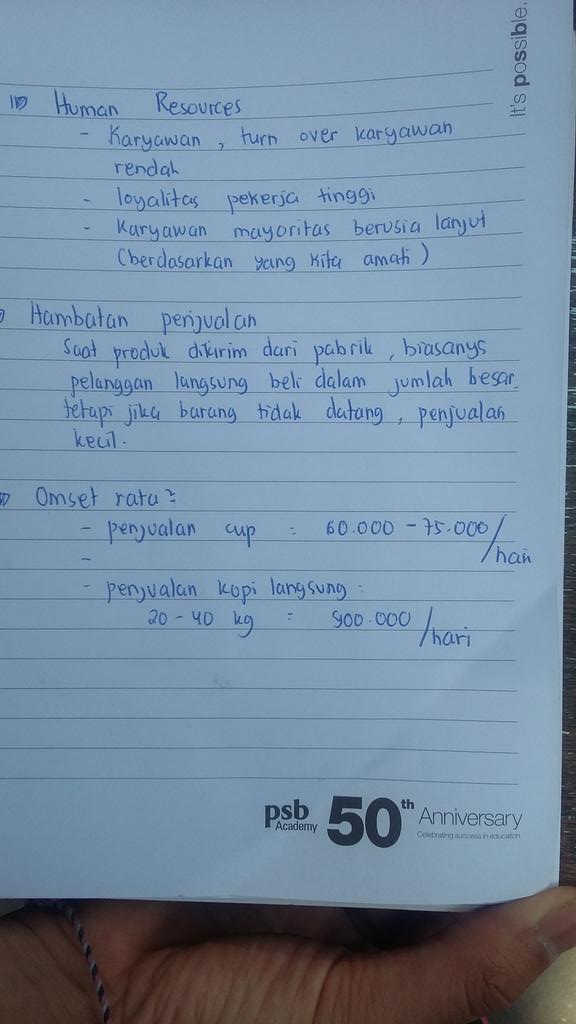 It's possible.
Human Resources
- Karyawan, turn over karyawan
rendah
- loyalitas pekerja tinggi
- Karyawan mayoritas berusia lanjut
(berdasarkan yang kita amati)
Hambatan penjualan
Saat produk dikirim dari pabrik, biasanya
pelanggan langsung beli dalam jumlah besar.
tetapi jika barang tidak datang, penjualan
kecil.
Omset rata²:
- penjualan cup : 60.000 - 75.000/hari
-
- penjualan kopi langsung :
20 - 40 kg : 900.000/hari
psb Academy 50th Anniversary
Celebrating success in education